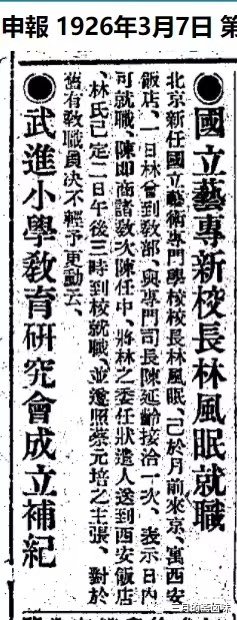 申報 1926年3月7日 第
●國立藝專新校長林風眠就職
北京新任國立藝術專門學校校長林風眠、已於月前來京、寓西安
飯店、一日林曾到敎部、與專門司長陳延齡接洽一次、表示日內
可就職、陳卽商諸敎次陳任中、將林之委任狀遣人送到西安飯店
、林氏已定二日午後三時到校就職、並遵照蔡元培之主張、對於
舊有敎職員決不輕予更動云、
●武進小學敎育研究會成立補紀